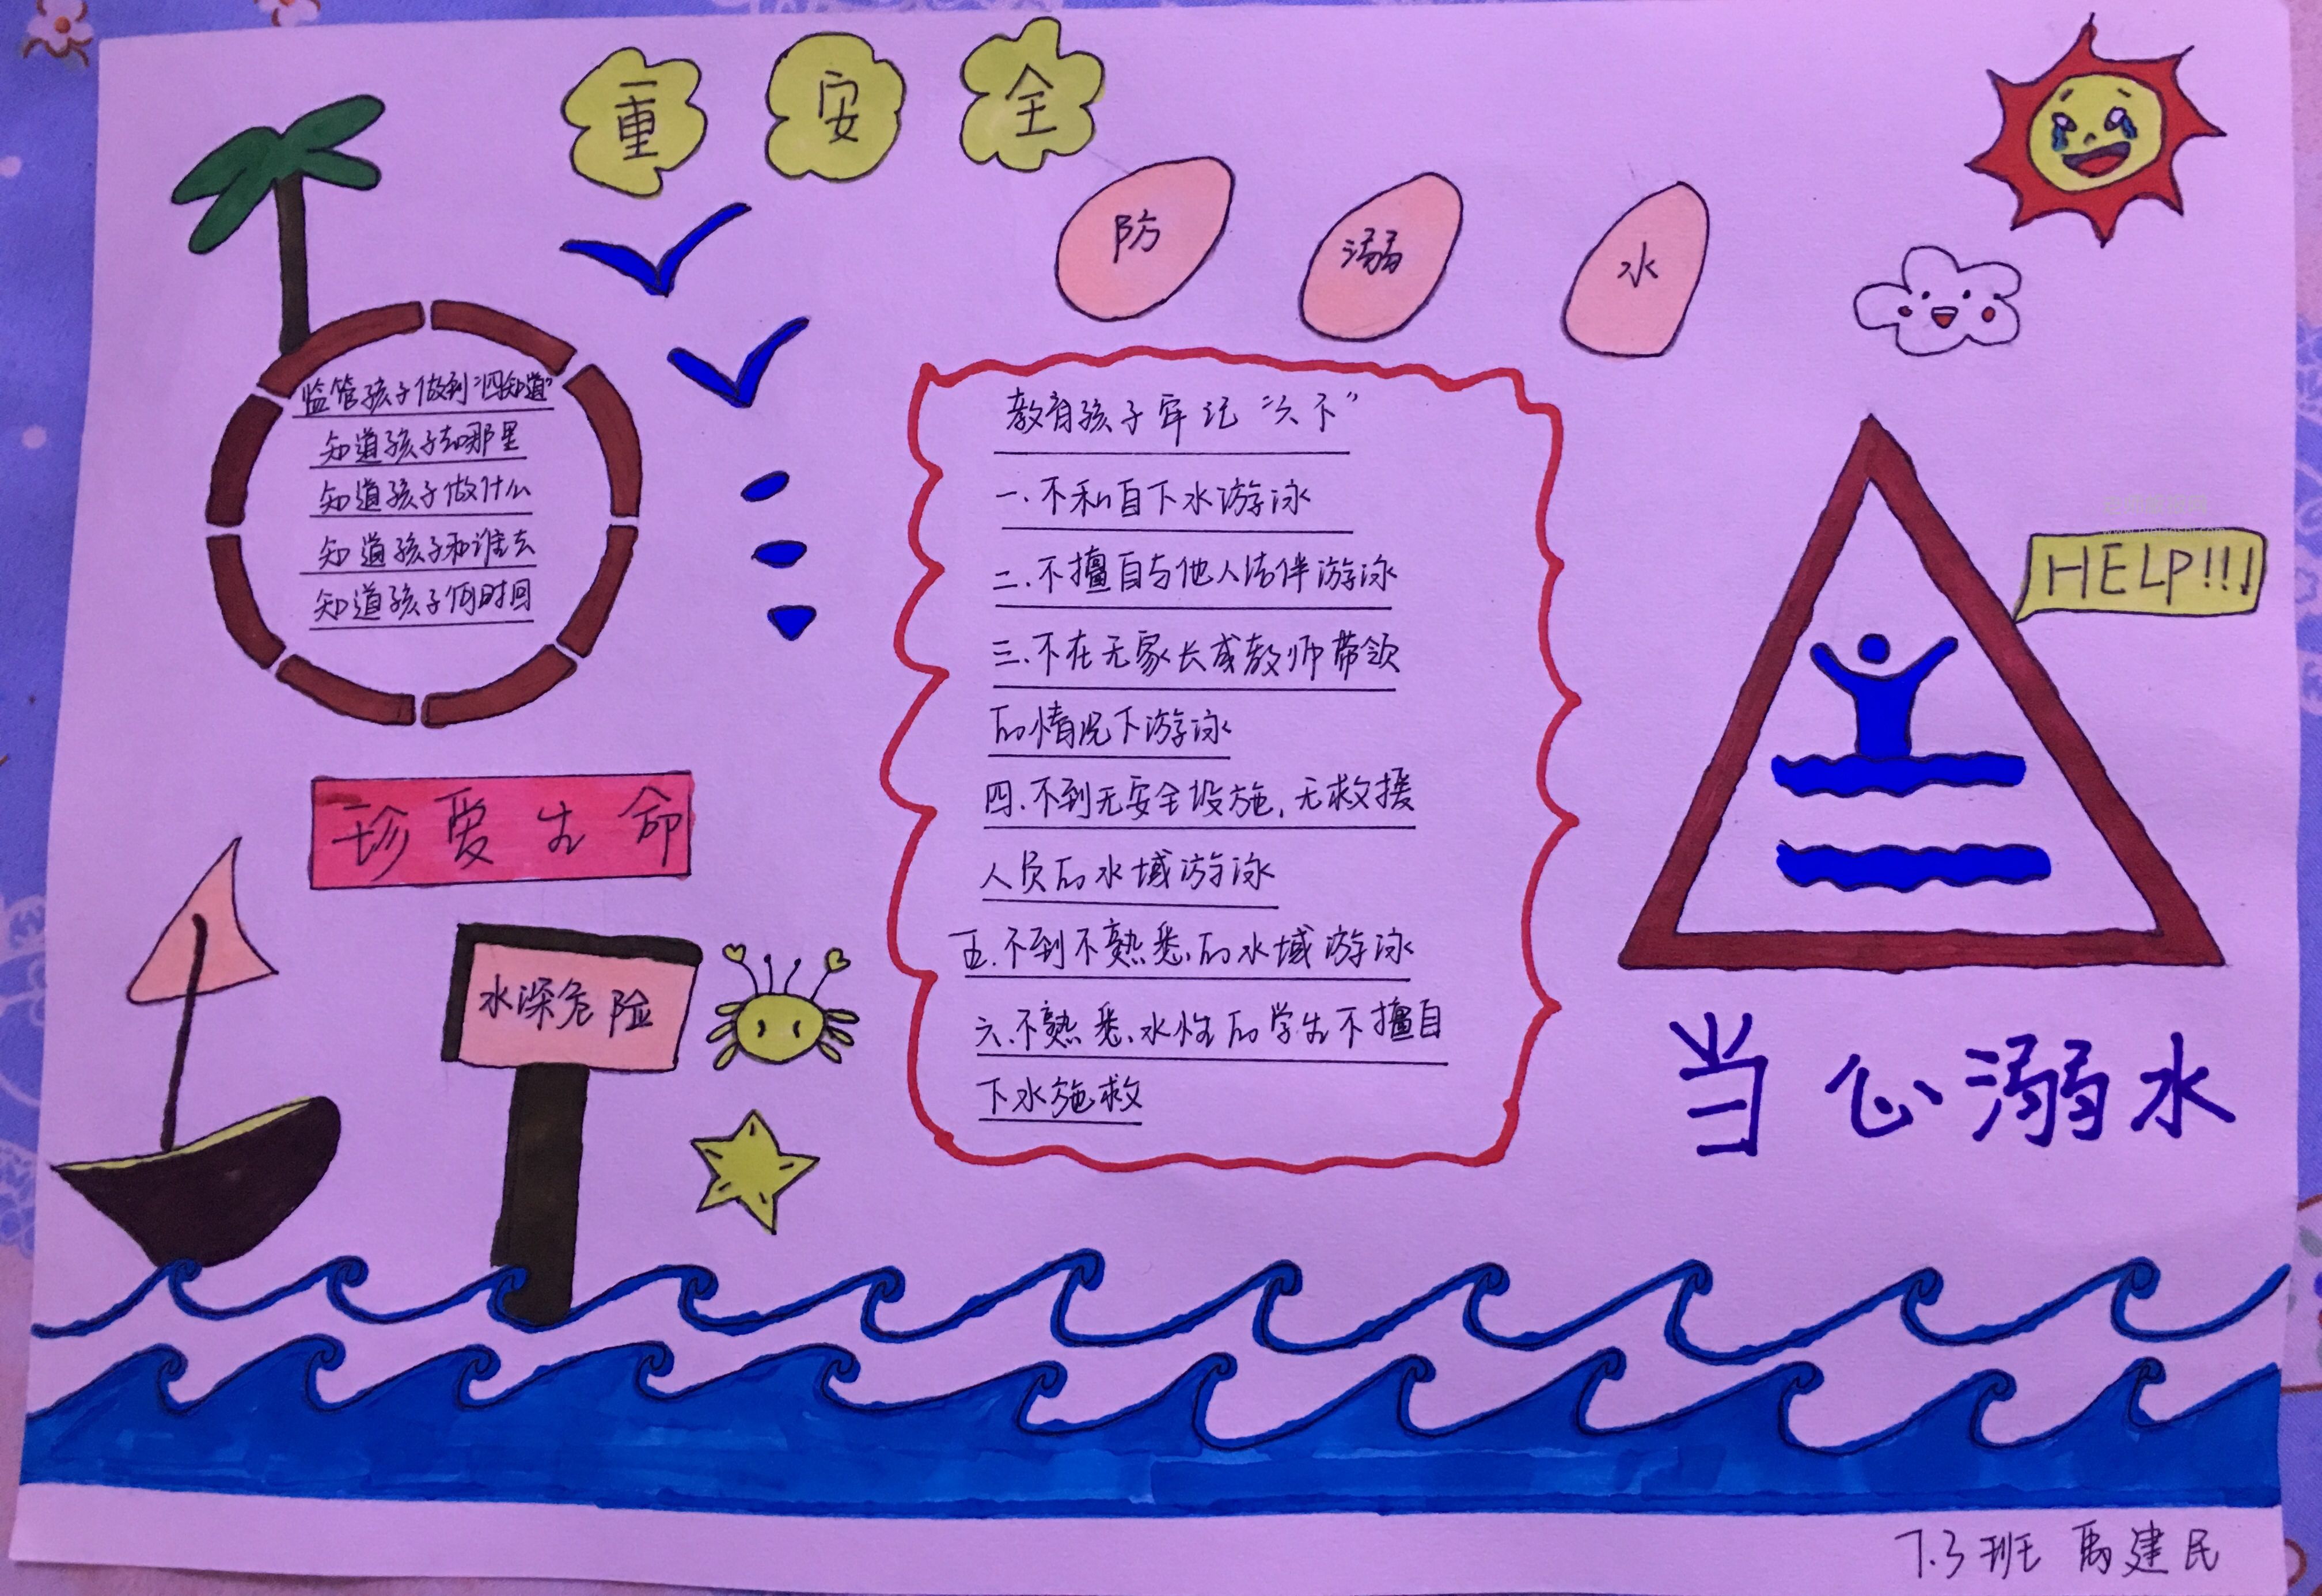 重安全
防溺水
监管孩子做到“四知道”
知道孩子去哪里
知道孩子做什么
知道孩子和谁去
知道孩子何时回
教育孩子牢记“六不”
一.不私自下水游泳
二.不擅自与他人结伴游泳
三.不在无家长或教师带领
的情况下游泳
四.不到无安全设施,无救援
人员的水域游泳
五.不到不熟悉的水域游泳
六.不熟悉水性的学生不擅自
下水施救
HELP!!!
珍爱生命
水深危险
当心溺水
7.3班 禹建民